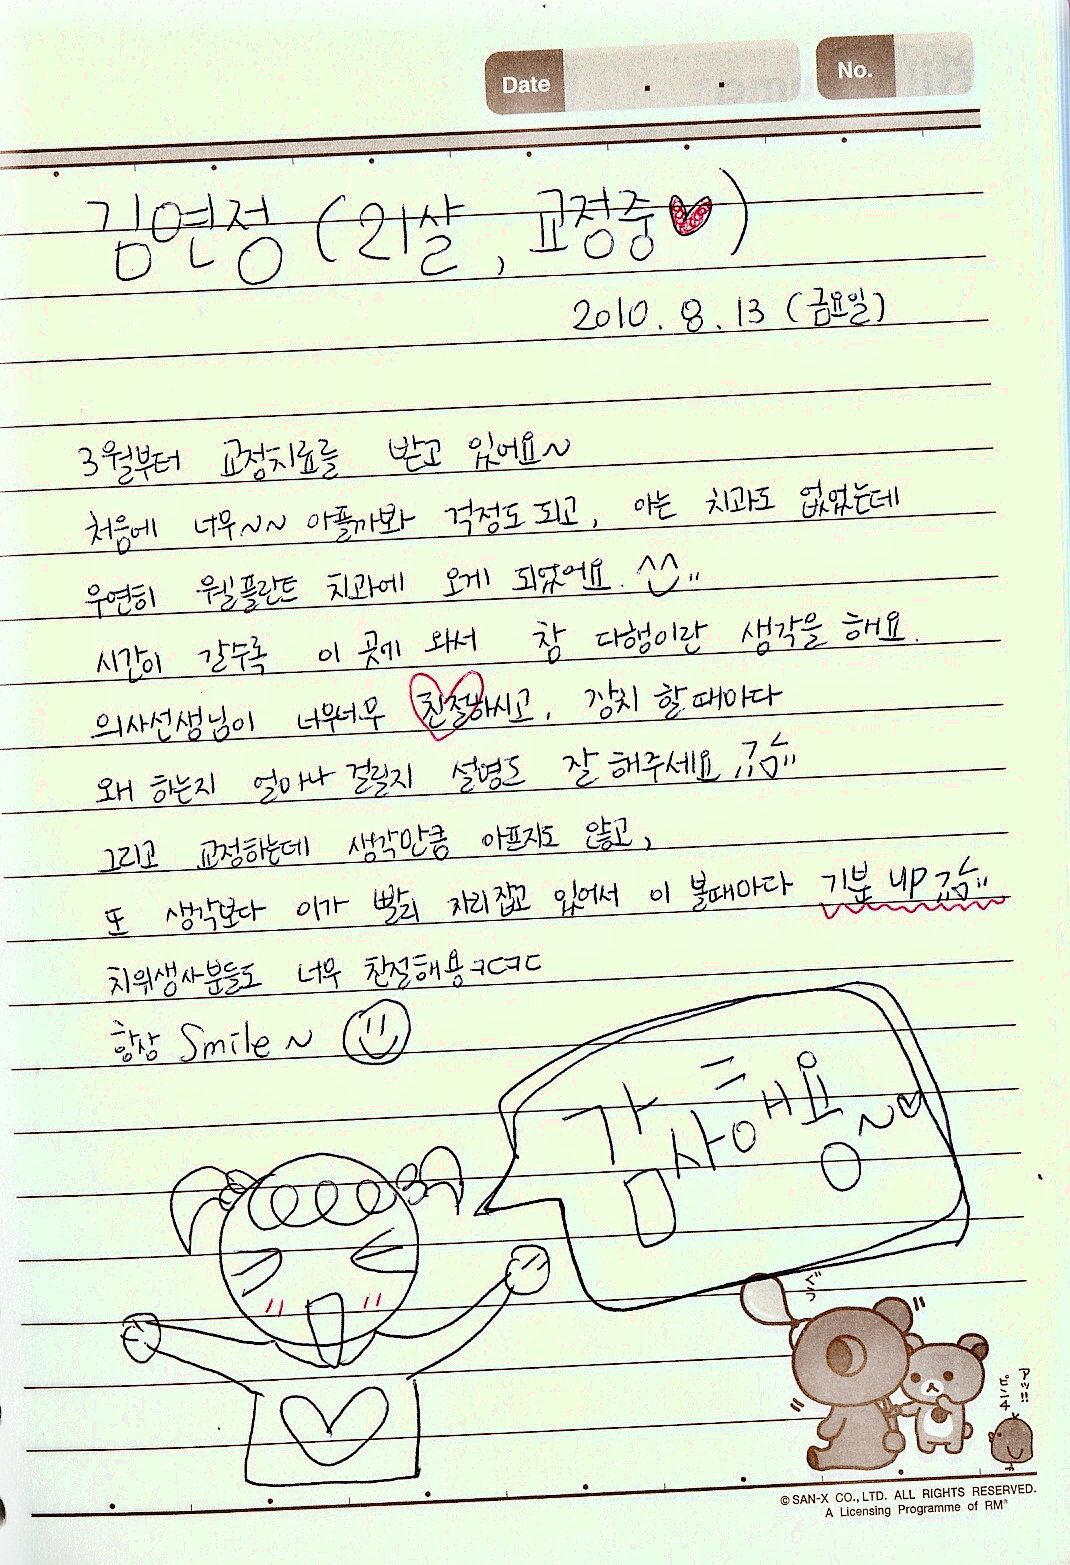 Date . . No.
김연정 (21살, 교정중♥)
2010. 8. 13 (금요일)
3월부터 교정치료를 받고 있어요~
처음에 너무~~ 아플까봐 걱정도 되고, 아는 치과도 없었는데
우연히 웰플란트 치과에 오게 되었어요. ^^
시간이 갈수록 이 곳에 와서 참 다행이란 생각을 해요.
의사선생님이 너무너무 친절하시고, 장치 할 때마다
왜 하는지 얼마나 걸릴지 설명도 잘 해주세요
그리고 교정하는데 생각만큼 아프지도 않고,
또 생각보다 이가 빨리 자리잡고 있어서 이 볼때마다 기분 up
치위생사분들도 너무 친절해용ㅋㄷㅋㄷ
항상 Smile~
감사해용~♡
ぐぅ
アッ!!
ピンチ
© SAN-X CO., LTD. ALL RIGHTS RESERVED.
A Licensing Programme of RM®